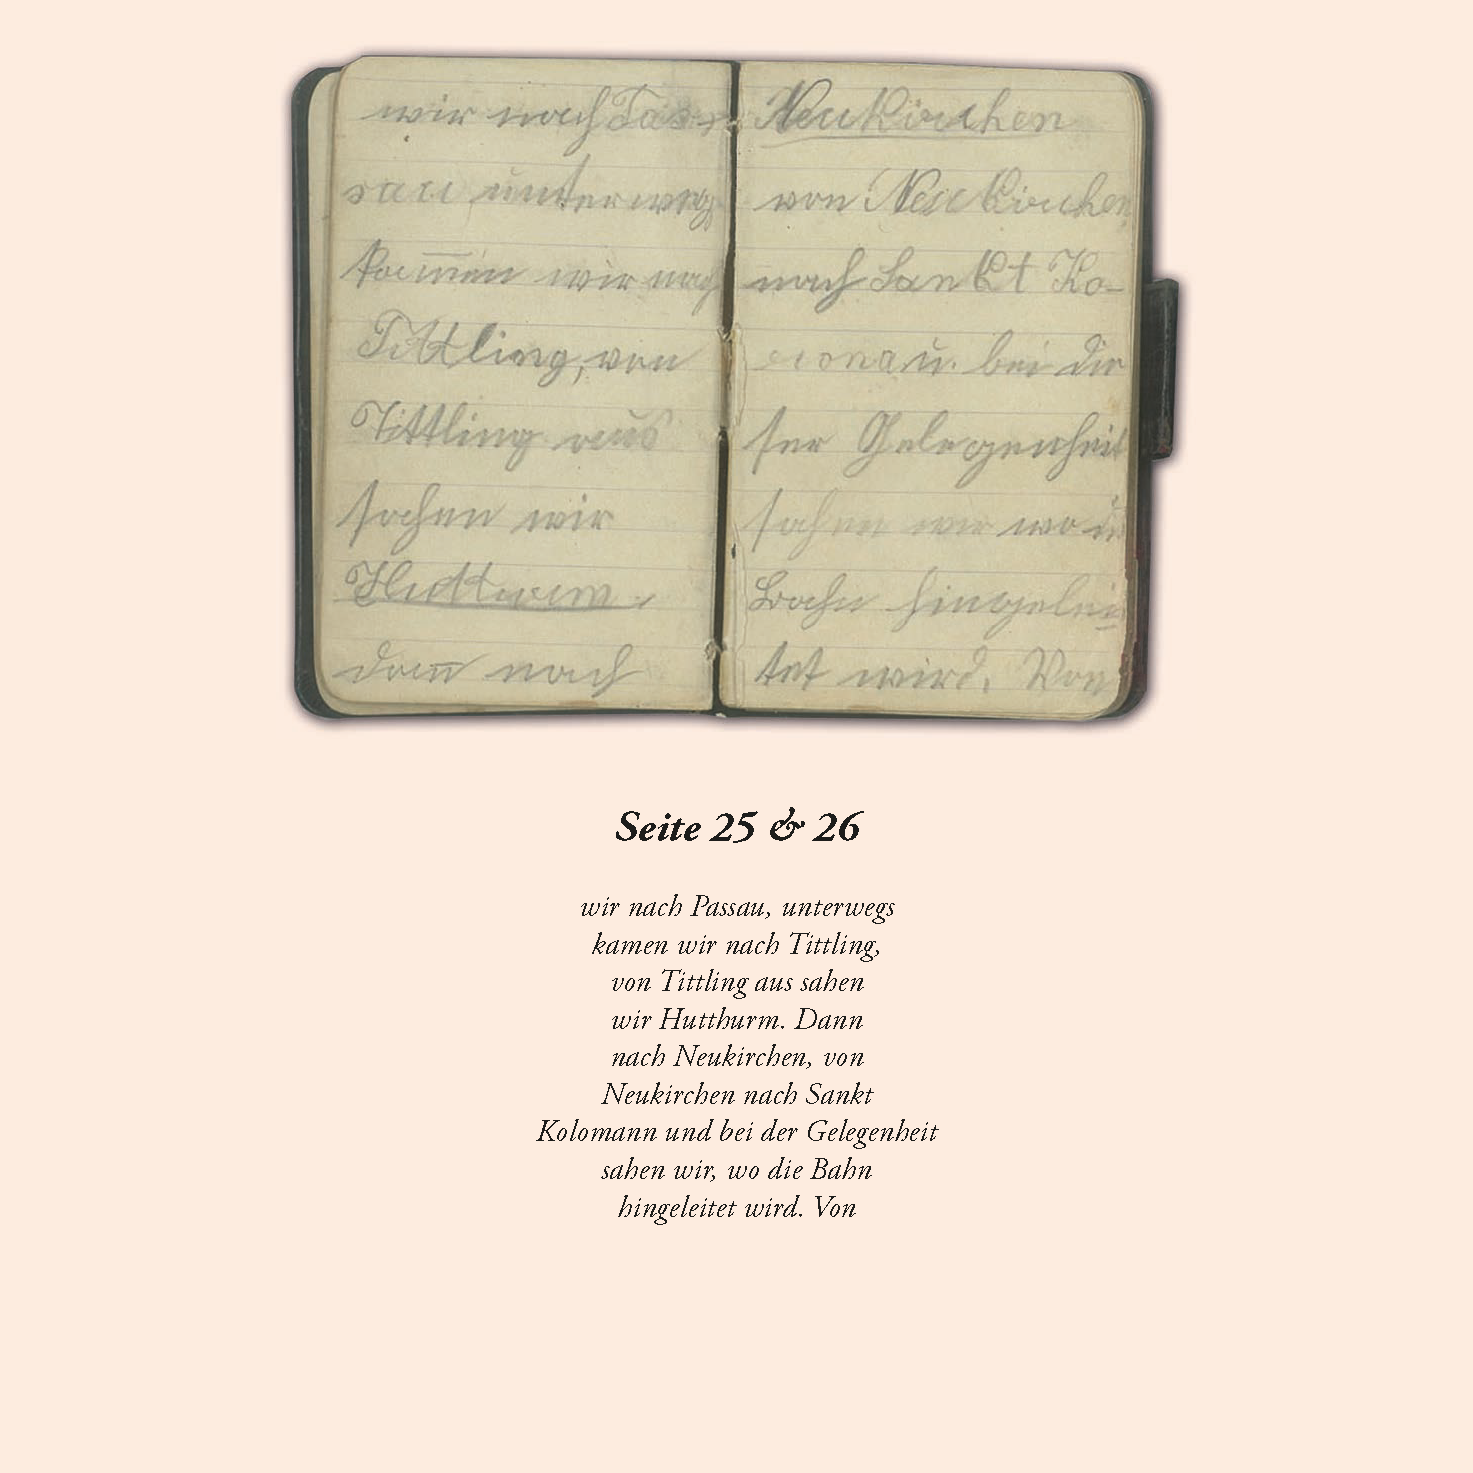 wir nach Pas-
sau unterwegs
kamen wir nach
Tittling, von
Tittling aus
sahen wir
Hutturm.
dann nach
Neukirchen
von Neukirchen
nach Sankt Ko-
u. bei die
ser Gelegenheit
sahen wir wo die
Bahn hingelei
tet wird. Von
Seite 25 & 26
wir nach Passau, unterwegs
kamen wir nach Tittling,
von Tittling aus sahen
wir Hutthurm. Dann
nach Neukirchen, von
Neukirchen nach Sankt
Kolomann und bei der Gelegenheit
sahen wir, wo die Bahn
hingeleitet wird. Von